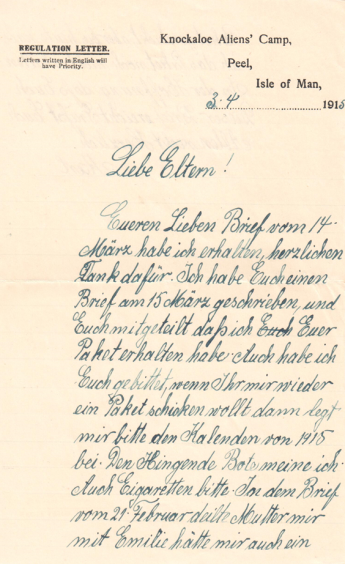 REGULATION LETTER.
Letters written in English will
have Priority.
Knockaloe Aliens' Camp,
Peel,
Isle of Man,
3.4 1915
Liebe Eltern!
Eueren Lieben Brief vom 14.
März habe ich erhalten, herzlichen
Dank dafür. Ich habe Euch einen
Brief am 15 März geschrieben, und
Euch mitgeteilt daß ich Euch Euer
Paket erhalten habe. Auch habe ich
Euch gebittet, wenn Ihr mir wieder
ein Paket schicken wollt dann legt
mir bitte den Kalenden von 1915
bei. Den Hingende Bots meine ich.
Auch Cigaretten bitte. In dem Brief
vom 21. Februar deilt Mutter mir
mit Emilie hätte mir auch ein